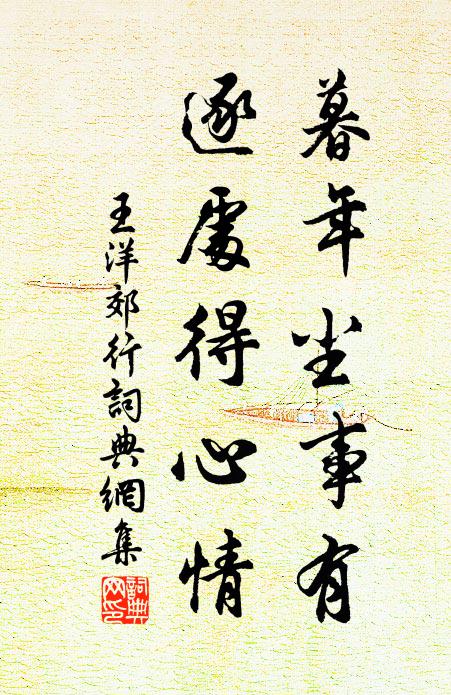 暮年坐事有
逐處得心情
王洋郊行詞典網集
詞典网印